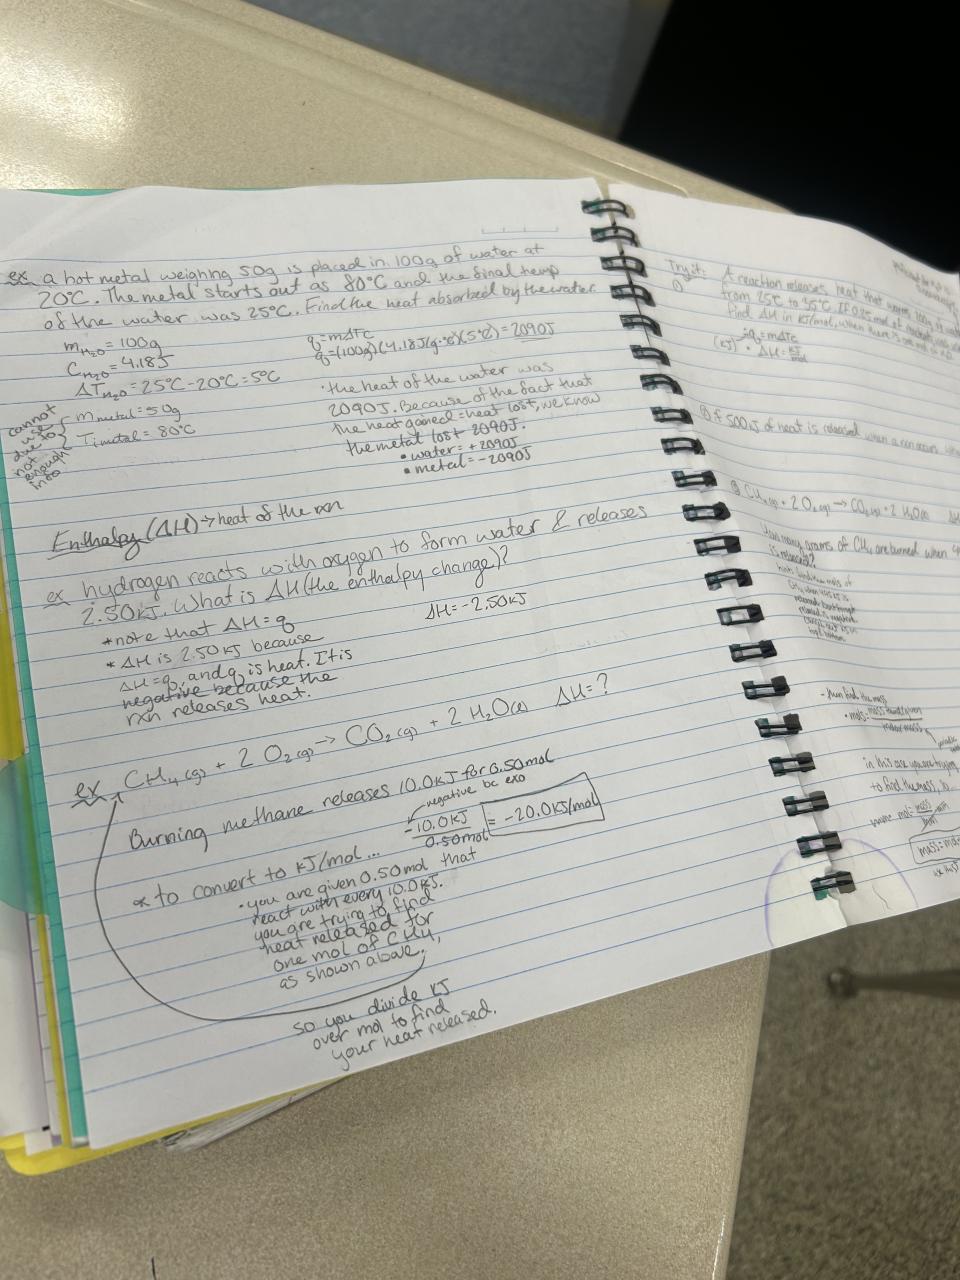 ex a hot metal weighing 50g is placed in 100g of water at
20°C. The metal starts out as 80°C and the final temp
of the water was 25°C. Find the heat absorbed by the water
mH₂O = 100g
CH₂O = 4.18J
ΔTH₂O = 25°C - 20°C = 5°C
cannot
use
due to
not
enough
info
mmetal = 50g
Timetal = 80°C
q = mΔTc
q = (100g)(4.18J/g·°C)(5°C) = 2090J
• the heat of the water was
2090J. Because of the fact that
the heat gained = heat lost, we know
the metal lost 2090J.
• water = +2090J
• metal = -2090J
Enthalpy (ΔH) → heat of the rxn
ex hydrogen reacts with oxygen to form water & releases
2.50kJ. What is ΔH (the enthalpy change)?
*note that ΔH = q
ΔH = -2.50kJ
* ΔH is 2.50 kJ because
ΔH = q, and q is heat. It is
negative because the
rxn releases heat.
ex CH₄(g) + 2 O₂(g) → CO₂(g) + 2 H₂O(l) ΔH = ?
Burning methane releases 10.0kJ for 0.50mol
negative bc exo
-10.0kJ
0.50mol
= -20.0kJ/mol
* to convert to kJ/mol...
• you are given 0.50 mol that
react with every 10.0kJ.
you are trying to find
heat released for
one mol of CH₄,
as shown above.
so you divide kJ
over mol to find
your heat released.
Try it:
① A reaction releases heat that warms 100g of
from 25°C to 35°C. If 0.25 mol of
find ΔH in kJ/mol, when there is
q = mΔTc
(kJ) • ΔH = kJ/mol
② If 500J of heat is released when a rxn occurs
③ CH₄(g) + 2 O₂(g) → CO₂(g) + 2 H₂O(l) ΔH
How many grams of CH₄ are burned when
is released?
- then find the mass
• mols =
molar mass
in this case you are trying
to find the mass, so